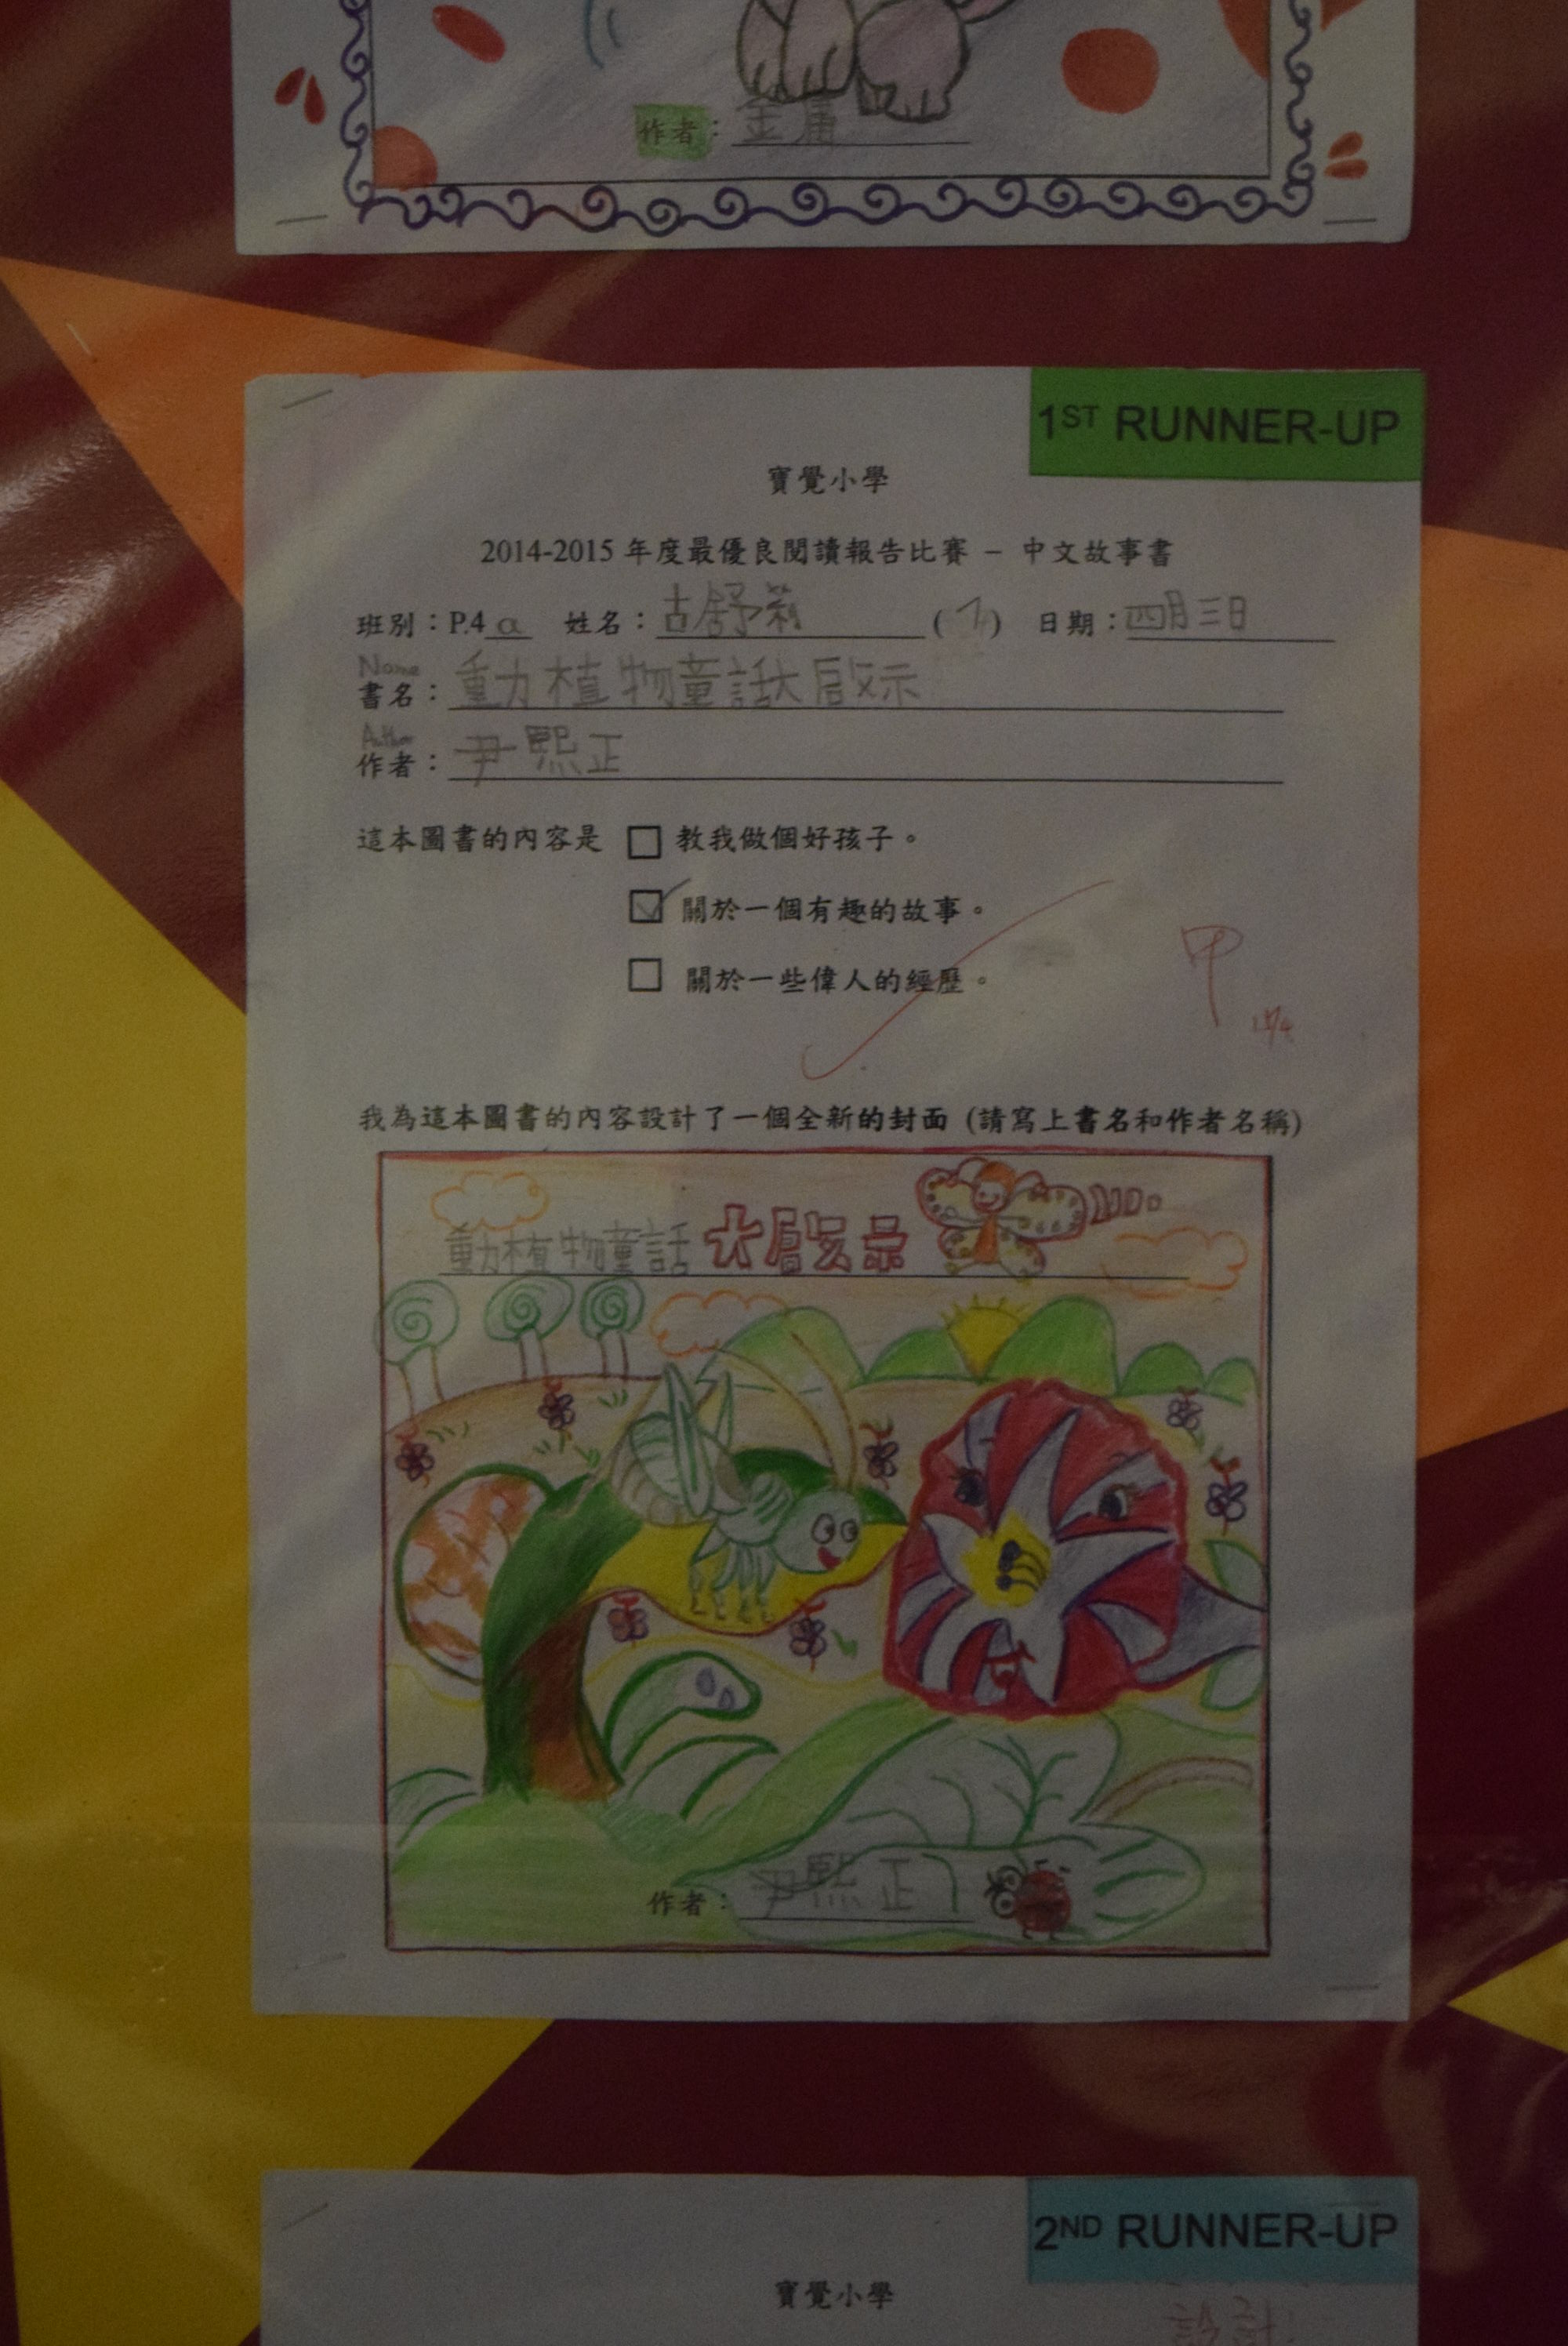 作者：金庸
1ST RUNNER-UP
寶覺小學
2014-2015 年度最優良閱讀報告比賽 – 中文故事書
班別：P.4 a 姓名：古舒莉 ( ) 日期：四月三日
Name
書名：動植物童話大啟示
Author
作者：尹熙正
這本圖書的內容是 □ 教我做個好孩子。
☑ 關於一個有趣的故事。
□ 關於一些偉人的經歷。
甲
我為這本圖書的內容設計了一個全新的封面 (請寫上書名和作者名稱)
動植物童話大啟示
作者：尹熙正
2ND RUNNER-UP
寶覺小學
設計